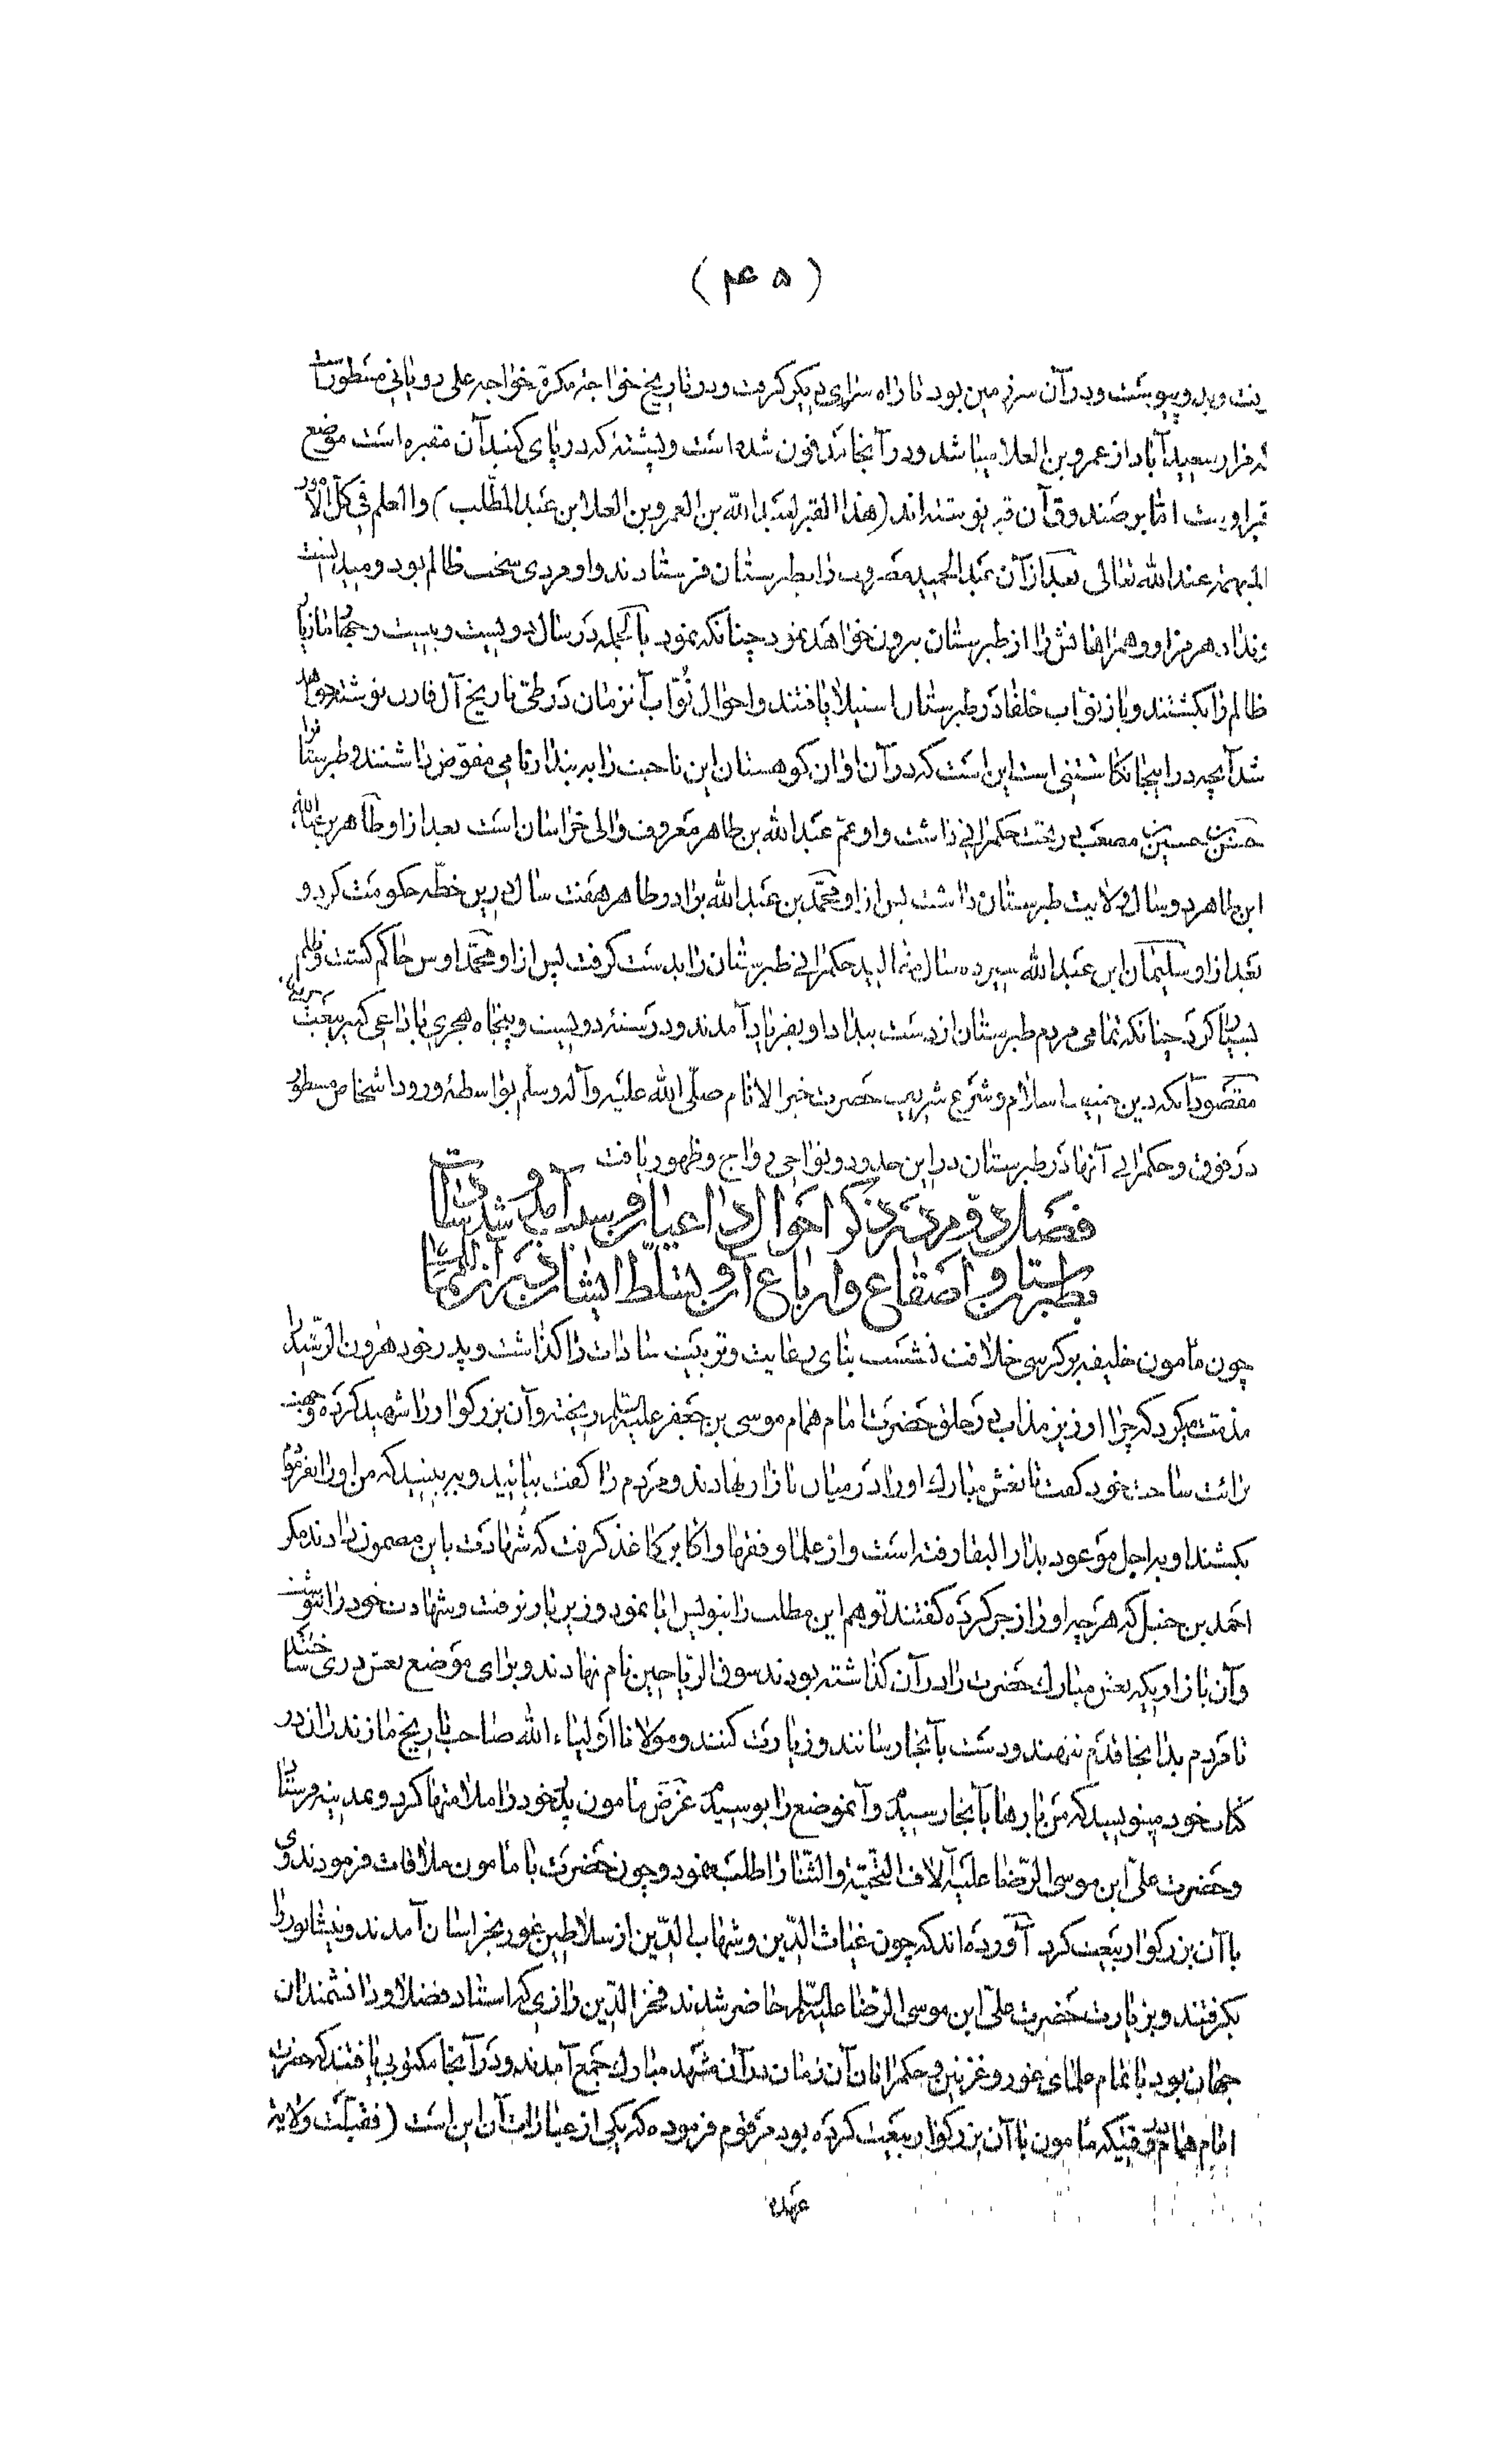 ( ۴۵ )
وبدو پیوست ودر آن سرزمین بود تا راه سرای دیگر گرفت ودر تاریخ خواجه مکرم خواجه علی رویانی مسطور است
که مزار سعید آباد از عمرو بن العلا میباشد ودر آنجا مدفون شده است وپشته که در پای گنبد آن مقبره است موضع
قبر اوست اما بر صندوق آن قبر نوشته‌اند (هذا القبر لعبد الله بن العمرو بن العلا ابن عبد المطلب) والعلم فی کل الامور
المبهمة عند الله تعالی بعد از آن عبد الحمید مضروب را بطبرستان فرستادند واو مردی سخت ظالم بود ومیدانست
ونداد هرمز او وهمراهانش را از طبرستان بیرون خواهد نمود چنانکه نمود بالجمله در سال دویست وبیست وچهار مازیار
ظالم را بکشتند وباز نواب خلفا در طبرستان استیلا یافتند واحوال نواب آنزمان در طی تاریخ آل قارن نوشته خواهد
شد آنچه در اینجا نگاشتنی است این است که در آن اوان کوهستان این ناحیت را به بندار نامی مفوض داشتند وطبرستان را
حسن بن حسین مصعب در تحت حکمرانی داشت واو عم عبد الله بن طاهر معروف والی خراسان است بعد از او طاهر بن عبد الله
ابن طاهر دو سال ولایت طبرستان داشت پس از او محمد بن عبد الله برادر طاهر هفت سال درین خطه حکومت کرد و
بعد از او سلیمان ابن عبد الله سیزده سال حکمرانی طبرستان را بدست گرفت پس از او محمد اوس حاکم گشت وظلم
بسیار کرد چنانکه تمامی مردم طبرستان از دست بیداد او بفریاد آمدند ودر سنه دویست وپنجاه هجری با داعی کبیر بیعت
مقصود آنکه دین اسلام وشرع شریف حضرت خیر الانام صلی الله علیه وآله وسلم بواسطهٔ ورود اشخاص مسطور
در فوق وحکمرانی آنها در طبرستان در این حدود ونواحی رواج وظهور یافت
فصل در ذکر احوال داعیان وبیرون آمدن
طبرستان واصقاع وارباع آن وتسلط ایشان
چون مأمون خلیفه بر کرسی خلافت نشست بنای رعایت وتربیت سادات را گذاشت وپدر خود هرون الرشید را
مذمت میکرد که چرا ارزیز مذاب در حلق حضرت امام همام موسی بن جعفر علیه السلام ریخته وآن بزرگوار را شهید کرده وبجهت
برائت ساحت خود گفت تا نعش مبارک او را در میان بازار نهادند ومردم را گفت بیائید وببینید که من او را نفرمودم
بکشند او باجل موعود بدار البقا رفته است واز علما وفقها واکابر کاغذ گرفت که شهادت باین مضمون دادند مگر
احمد بن حنبل که هر چه او را زجر کرده گفتند تو هم این مطلب را بنویس ابا نمود وزیر بار نرفت وشهادت خود را ننوشت
وآن بازاریکه نعش مبارک حضرت را در آن گذاشته بودند سوق الریاحین نام نهادند وبرای موضع نعش دری ساختند
تا مردم بدانجا قدم ننهند ودست بآنجا رسانند وزیارت کنند ومولانا اولیاء الله صاحب تاریخ مازندران در
کتاب خود مینویسد که من بارها بآنجا رسیدم وآنموضع را بوسیدم غرض مأمون پدر خود را ملامتها کرد وبمدینه فرستاد
وحضرت علی ابن موسی الرضا علیه آلاف التحیة والثنا را طلب نمود وچون حضرت با مأمون ملاقات فرمودند وی
با آن بزرگوار بیعت کرد آورده‌اند که چون غیاث الدین وشهاب الدین از سلاطین غور بخراسان آمدند ونیشابور را
بگرفتند وبزیارت حضرت علی ابن موسی الرضا علیه السلام حاضر شدند فخر الدین رازی که استاد فضلا ودانشمندان
جهان بود با تمام علمای غور وغزنین وحکمرانان آن زمان در آن مشهد مبارک جمع آمدند ودر آنجا مکتوبی یافتند که حضرت
امام همام وقتیکه مأمون با آن بزرگوار بیعت کرده بود مرقوم فرموده که یکی از عبارات آن این است (فقبلت ولایة
عهده